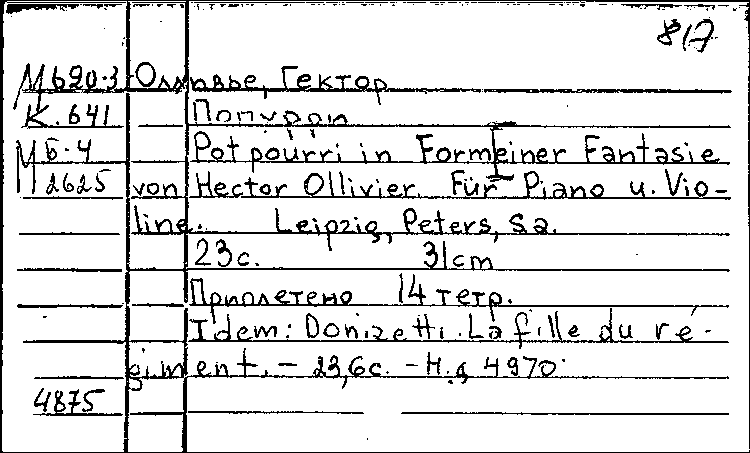 817
М620-3 Олливье, Гектор
К. 641 Попурри
М Б-4 Pot pourri in Form einer Fantasie
2625 von Hector Ollivier. Für Piano u. Vio-
line. Leipzig, Peters, s.a.
23c. 31cm
Приплетено 14 тетр.
Idem: Donizetti. La fille du ré-
giment. - 23,6c. - Н.д. 4970.
4875